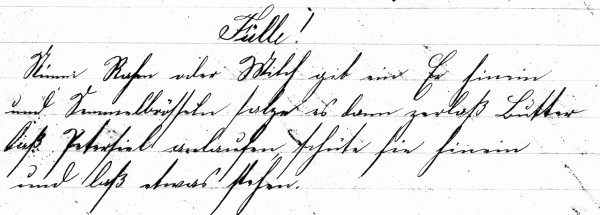 Fülle!
Nimm Rahm oder Milch gib ein Ei hinein
und Semmelbrösseln salze es dann zerlaß Butter
laß Petersiel anlaufen schüte sie hinein
und laß etwas stehen.